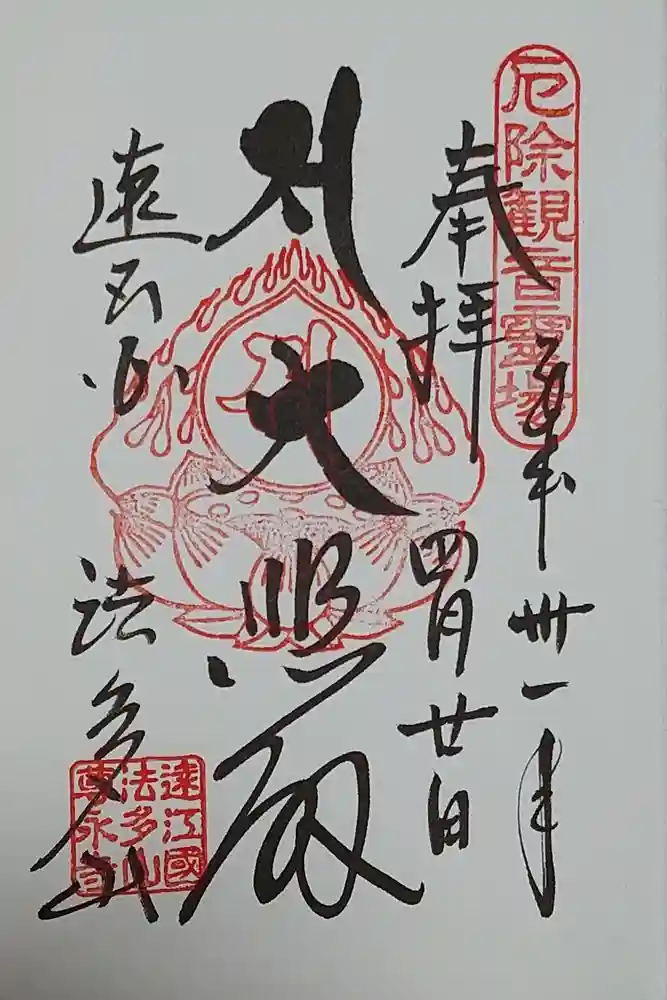 厄除観音靈場
奉拝
平成卅一年
四月廿日
大悲殿
遠州
法多山
遠江國
法多山
尊永寺